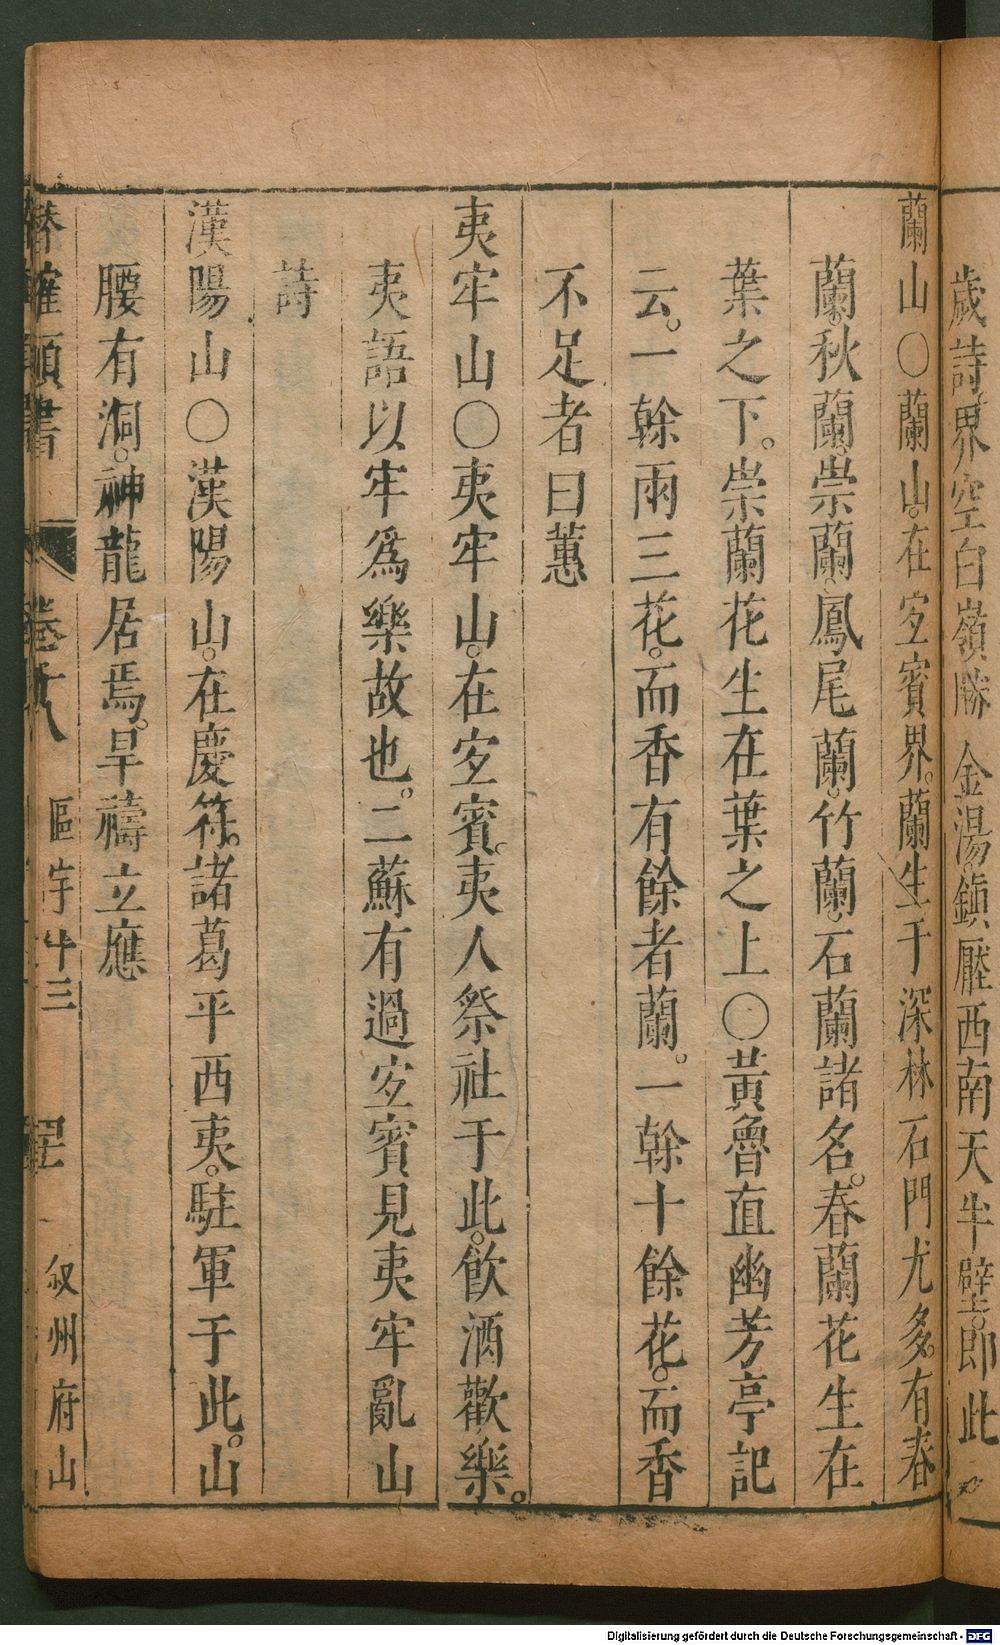 歲詩界空白嶺勝 金湯。鎮壓西南天半壁。即此
蘭山○蘭山。在宜賓界。蘭生于深林石門尤多。有春
蘭。秋蘭。崇蘭。鳳尾蘭。竹蘭。石蘭諸名。春蘭花生在
葉之下。崇蘭花生在葉之上○黃魯直幽芳亭記
云。一榦兩三花。而香有餘者蘭。一榦十餘花。而香
不足者曰蕙
夷牢山○夷牢山。在宜賓。夷人祭社于此。飲酒歡樂。
夷語以牢爲樂故也。二蘇有過宜賓見夷牢亂山
詩
漢陽山○漢陽山。在慶符。諸葛平西夷。駐軍于此。山
腰有洞。神龍居焉。旱禱立應
潛確類書 卷十八 區宇十三 叙州府山
Digitalisierung gefördert durch die Deutsche Forschungsgemeinschaft - DFG